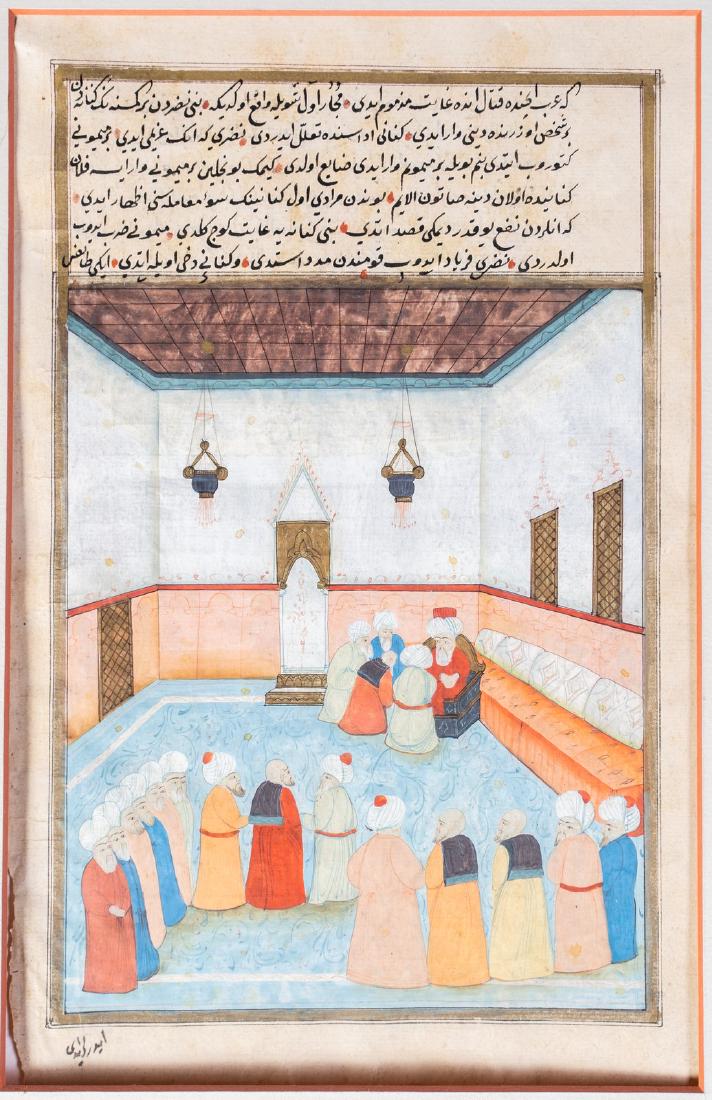 که عرب ایچنده قتال انده غایت مذموم ایدی فجار اول شویله واقع اولدیکه بنی نضردن بر کمسنه نک کنانه دن
بر شخص اوزرنده دینی وار ایدی کنانی اداسنده تعلل ایدردی نضری که انک غریمی ایدی بر میمونی
کتوروب ایتدی بنم بویله بر میمونم وار ایدی ضایع اولدی کیمک بونجلین بر میمونی وار ایسه فلان
کنانیده اولان دینه صاتون الایم بوندن مرادی اول کنانینک سوء معامله سنی اظهار ایدی
که انلردن نفع یوقدر دیمکی قصد ایتدی بنی کنانه یه غایت کوج کلدی میمونی ضرب ایدوب
اولدردی نضری فریاد ایدوب قومندن مدد استدی وکنانی دخی اویله ایتدی ایکی طائفه
ایدر